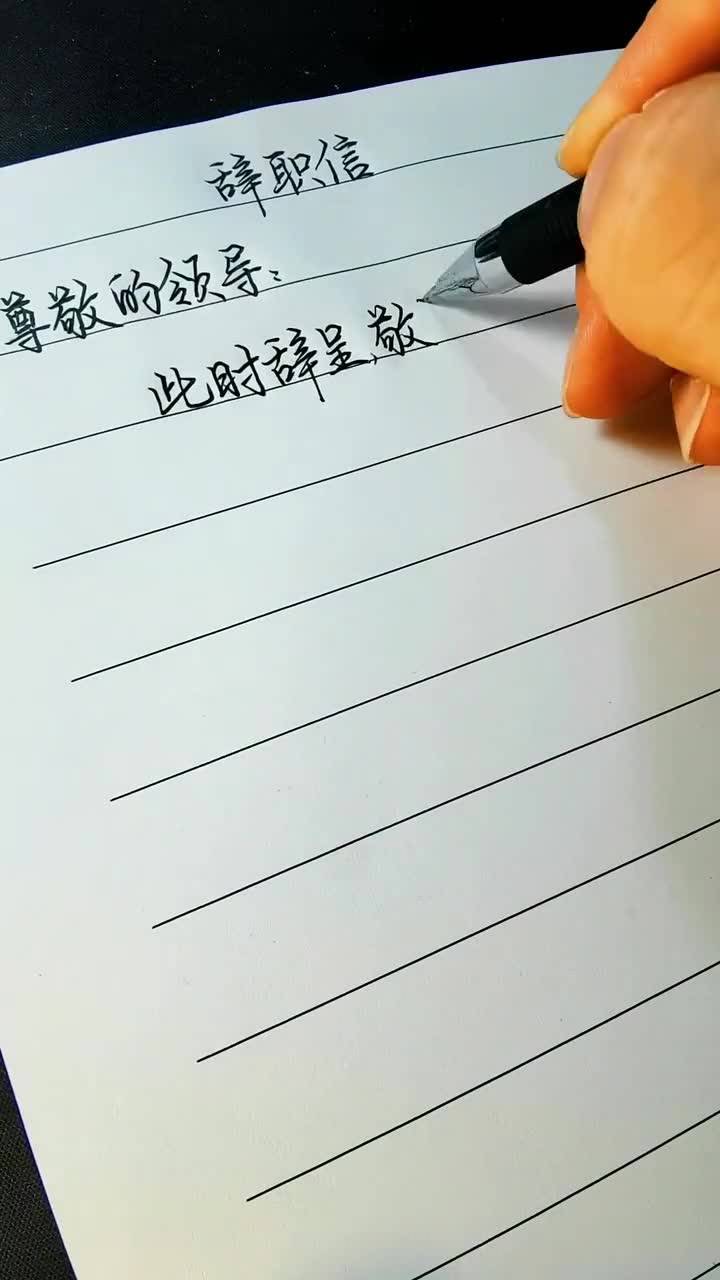 辞职信
尊敬的领导:
此时辞呈,敬